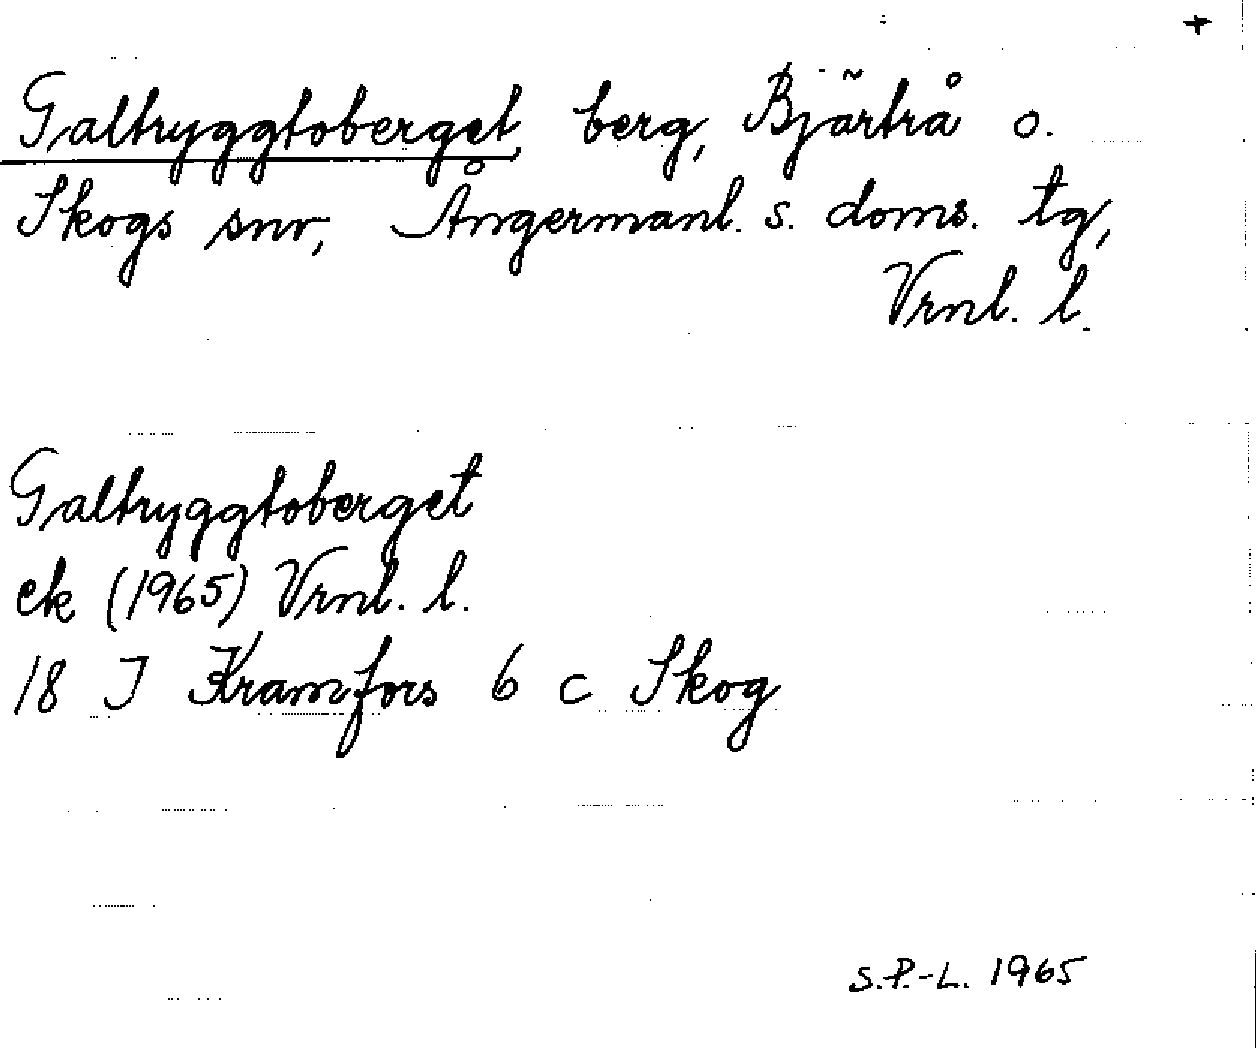 +
Galtryggtoberget, berg, Bjärtrå o.
Skogs snr, Ångermanl. s. doms. tg,
Vrnl. l.
Galtryggtoberget
ek (1965) Vrnl. l.
18 J Kramfors 6 c Skog
S.P.-L. 1965